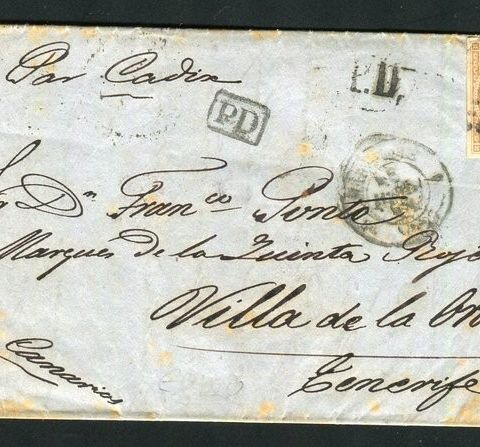 Por Cadix
P.D.
PD
Dn Franco Ponte
Marqués de la Quinta Roj
Villa de la Or
Canarias
Tenerife